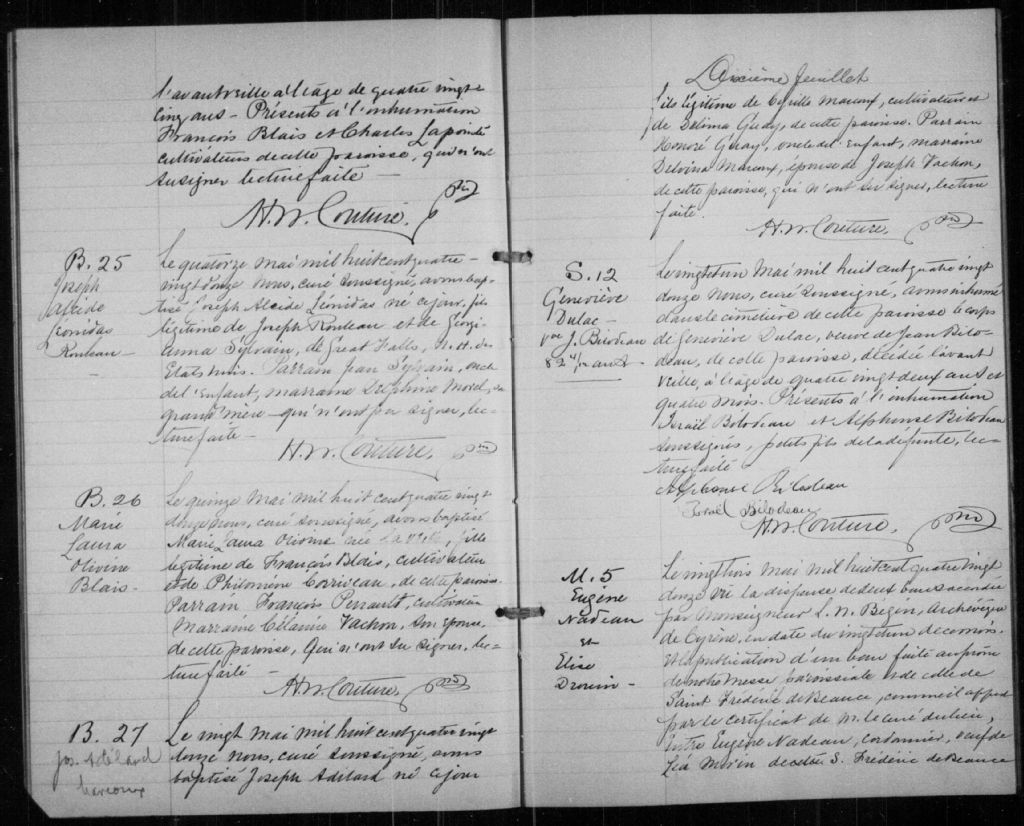 l'avant veille à l'âge de quatre vingt
cinq ans - Présents à l'inhumation
François Blais et Charles Lapointe
cultivateurs de cette paroisse, qui n'ont
su signer lecture faite -
H. W. Couture, ptre
B. 25
Joseph
Alcide
Léonidas
Rouleau -
Le quatorze mai mil huit cent quatre -
vingt douze nous, curé soussigné, avons bap-
tisé Joseph Alcide Léonidas né ce jour, fils
légitime de Joseph Rouleau et de Georgi-
anna Sylvain, de Great Falls, N. H. des
Etats Unis. Parrain Jean Sylvain, oncle
de l'Enfant, marraine Delphine Morel, sa
grand'mère - qui n'ont pu signer, lec-
ture faite -
H. W. Couture, ptre
B. 26
Marie
Laura
Olivine
Blais -
Le quinze mai mil huit cent quatre vingt
douze nous, curé soussigné, avons baptisé
Marie Laura Olivine née la veille, fille
légitime de François Blais, cultivateur
et de Philomène Corriveau, de cette paroisse
Parrain François Perrault, cultivateur
Marraine Célanire Vachon, son épouse,
de cette paroisse, Qui n'ont su signer, lec-
ture faite -
H. W. Couture, ptre
B. 27
Jos. Adélard
Marcoux
Le vingt mai mil huit cent quatre vingt
douze nous, curé soussigné, avons
baptisé Joseph Adélard né ce jour
Dixième feuillet
fils légitime de Cyrille Marcoux, cultivateur et
de Délima Guay, de cette paroisse. Parrain
Honoré Guay, oncle de l'Enfant, marraine
Delvina Marcoux, épouse de Joseph Vachon,
de cette paroisse, qui n'ont su signer, lecture
faite.
H. W. Couture, ptre
S. 12
Geneviève
Dulac -
vve J. Bilodeau
82 4/12 ans
Le vingt et un mai mil huit cent quatre vingt
douze nous, curé soussigné, avons inhumé
dans le cimetière de cette paroisse le corps
de Geneviève Dulac, veuve de Jean Bilo-
deau, de cette paroisse, décédée l'avant
veille, à l'âge de quatre vingt deux ans et
quatre mois. Présents à l'inhumation
Israël Bilodeau et Alphonse Bilodeau
soussignés, petits fils de la défunte, lec-
ture faite
Alphonse Bilodeau
Israël Bilodeau
H. W. Couture, ptre
M. 5
Eugène
Nadeau
et
Elise
Drouin -
Le vingt trois mai mil huit cent quatre vingt
douze vu la dispense de deux bans accordée
par Monseigneur L. N. Begin, Archevêque
de Cyrène, en date du vingt et un de ce mois.
Et la publication d'un ban faite au prône
de notre messe paroissiale et de celle de
Saint Frédéric de Beauce, comme il appert
par le certificat de Mr le curé du lieu,
Entre Eugène Nadeau, cordonnier, veuf de
Léa Morin de cette S. Frédéric de Beauce